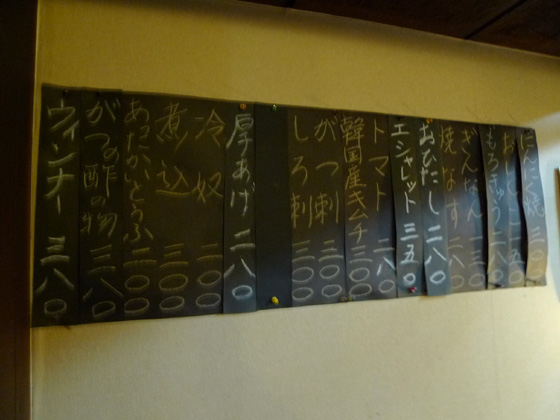 にんにく焼
おしんこ
もろきゅう 二八〇
ぎんなん 三八〇
焼なす 二八〇
おひたし 二八〇
エシャレット 三五〇
トマト 二八〇
韓国産キムチ 三〇〇
がつ刺 三〇〇
しろ刺 三〇〇
厚あげ 二八〇
冷奴 二〇〇
煮込 三〇〇
あたたかいとうふ 二〇〇
がつの酢の物 三八〇
ウィンナー 三八〇